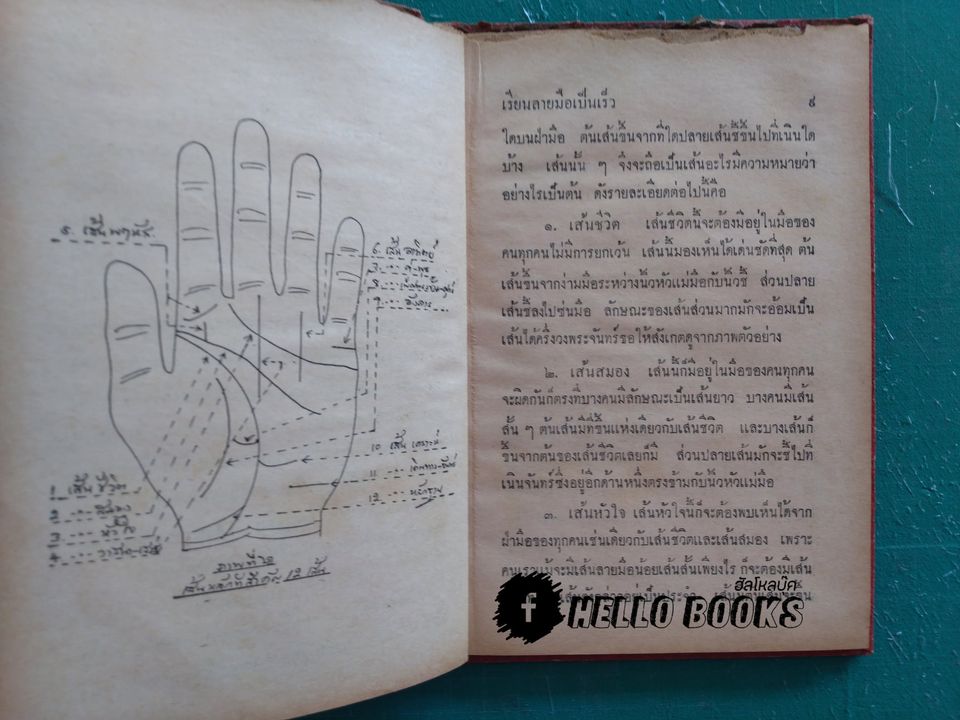 ๕. เส้น
๖. เส้น อาทิตย์
๗ .. - พุธ
๑. เส้น ชีวิต
๒ .. - สมอง
๓ .. - หัวใจ
10 เส้น เคราะห์
11 .. - เดินทาง-
12 .. -
ภาพที่ ๒
เส้นหลักที่สำคัญ 12 เส้น
เรียนลายมือเป็นเร็ว ๙
ใดบนฝ่ามือ ต้นเส้นขึ้นจากที่ใดปลายเส้นชี้ขึ้นไปที่เนินใด
บ้าง เส้นนั้น ๆ จึงจะถือเป็นเส้นอะไรมีความหมายว่า
อย่างไรเป็นต้น ดังรายละเอียดต่อไปนี้คือ
๑. เส้นชีวิต เส้นชีวิตนี้จะต้องมีอยู่ในมือของ
คนทุกคนไม่มีการยกเว้น เส้นนี้มองเห็นได้เด่นชัดที่สุด ต้น
เส้นขึ้นจากง่ามมือระหว่างนิ้วหัวแม่มือกับนิ้วชี้ ส่วนปลาย
เส้นชี้ลงไปซ่นมือ ลักษณะของเส้นส่วนมากมักจะอ้อมเป็น
เส้นโค้งครึ่งวงพระจันทร์ขอให้สังเกตดูจากภาพตัวอย่าง
๒. เส้นสมอง เส้นนี้ก็มีอยู่ในมือของคนทุกคน
จะผิดกันก็ตรงที่บางคนมีลักษณะเป็นเส้นยาว บางคนมีเส้น
สั้น ๆ ต้นเส้นมีที่ขึ้นแห่งเดียวกับเส้นชีวิต และบางเส้นก็
ขึ้นจากต้นของเส้นชีวิตเลยก็มี ส่วนปลายเส้นมักจะชี้ไปที่
เนินจันทร์ซึ่งอยู่อีกด้านหนึ่งตรงข้ามกับนิ้วหัวแม่มือ
๓. เส้นหัวใจ เส้นหัวใจนี้ก็จะต้องพบเห็นได้จาก
ฝ่ามือของทุกคนเช่นเดียวกับเส้นชีวิตและเส้นสมอง เพราะ
คนเราแม้จะมีเส้นลายมือน้อยเส้นสั้นเพียงไร ก็จะต้องมีเส้น
อยู่เป็นประจำ
ฮัลโหลบุ๊ค
f HELLO BOOKS